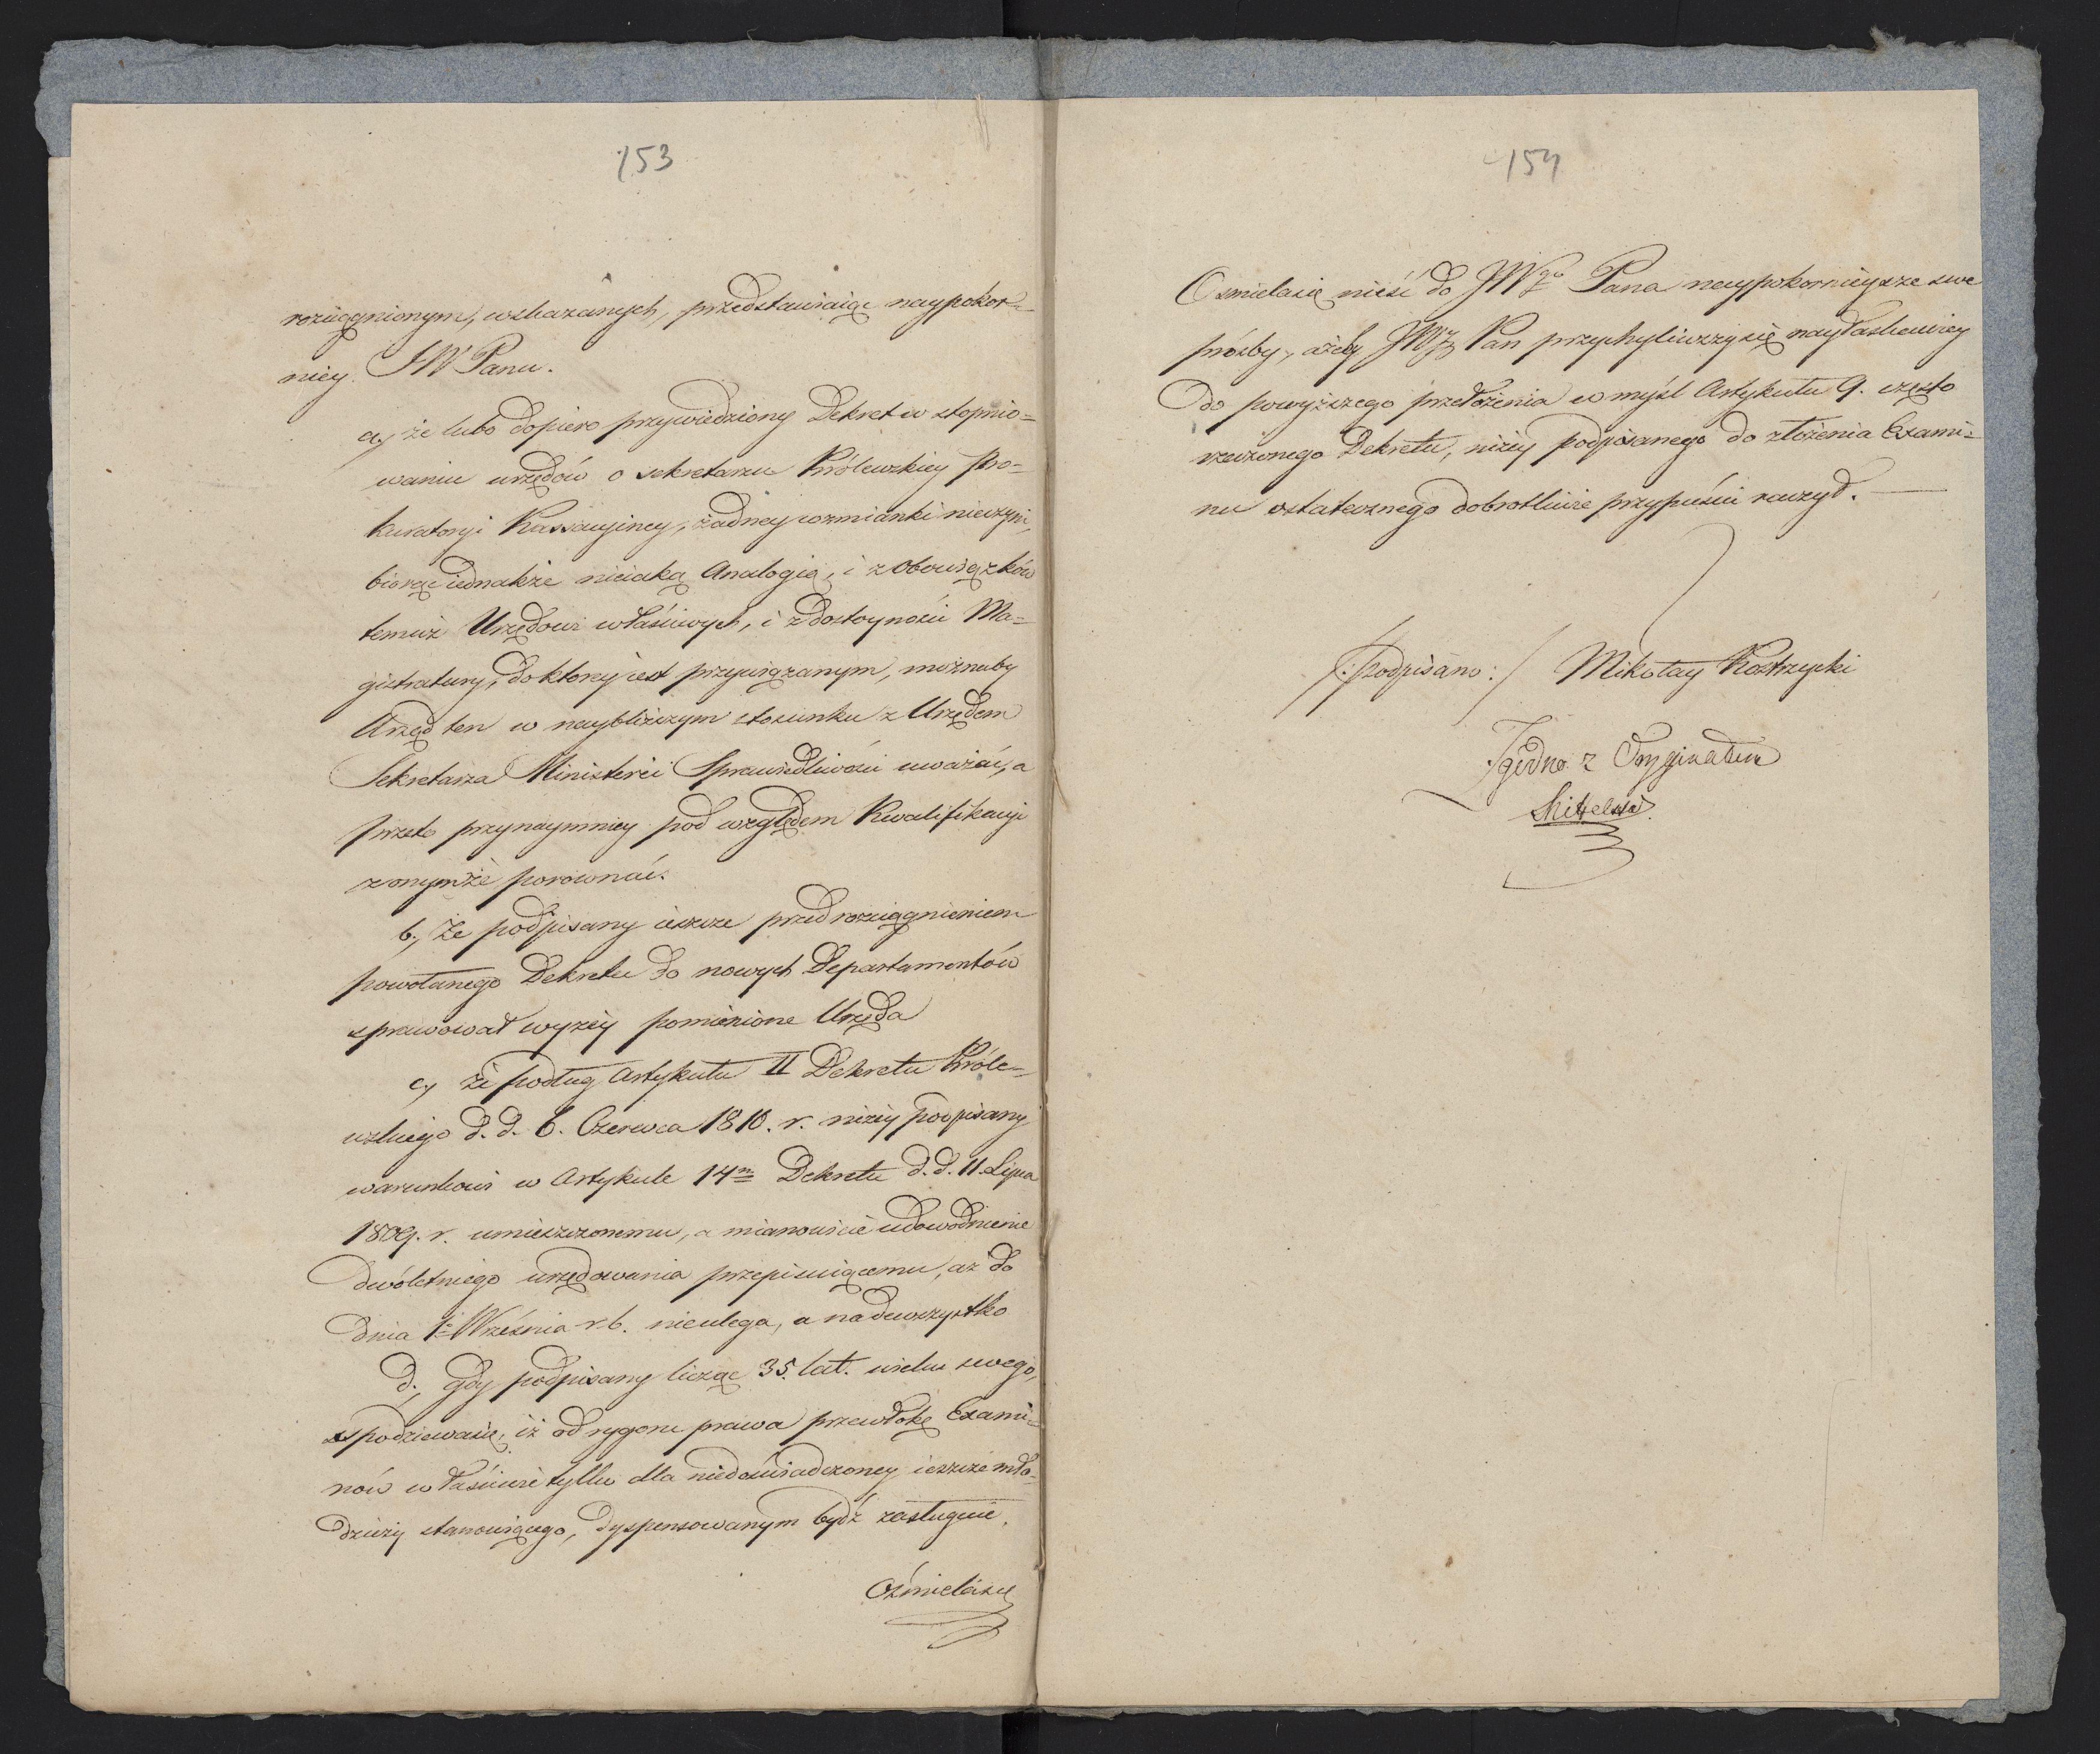 153
rozciągnionym, wskazanych, przedstawiaiąc naypokor-
niey JW Panu.
a, że lubo dopiero przywiedziony Dekret w stopnio-
waniu urzędów o sekretarzu Królewskiey Pro-
kuratoryi Kassacyiney, żadney wzmianki nieczyni,
biorąc iednakże nieiaką Analogią, i z Obowiązków
temuż Urzędowi właściwych, i z dostoyności Ma-
gistratury, do ktorey iest przywiązanym, możnaby
Urząd ten w naybliższym stosunku z Urzędem
Sekretarza Ministerii Sprawiedliwości uważać, a
przeto przynaymniey pod względem Kwalifikacyi
z onymże porównać.
b., Że podpisany ieszcze przed rozciągnieniem
powołanego Dekretu do nowych Departamentów
sprawował wyżey pomienione Urzęda
c, że podług Artykułu II Dekretu Króle-
wskiego d. d. 6. Czerwca 1810. r. niżey podpisany
warunkowi w Artykule 14m Dekretu d. d. 11. Lipca
1809. r. umieszczonemu, a mianowicie udowodnienie
dwóletniego urzędowania przepisuiącemu, aż do
dnia 1o Września r. b. nieulega, a nadewszystko
d., gdy podpisany licząc 35. lat. wieku swego,
spodziewasię, iż od rygoru prawa przewłokę Exami-
nów właściwie tylko dla niedoświadczoney ieszcze mło-
dzieży stanowiącego, dyspensowanym bydź zasługuie.
Ośmielasię
154
Osmielasię nieść do JWgo Pana naypokornieysze swe
próźby, ażeby JW Pan przychyliwszysię nayłaskawiey
do powyższego przełożenia w myśl Artykułu 9. często
rzeczonego Dekretu, niżey podpisanego do złożenia Exami-
nu ostatecznego dobrotliwie przypuścić raczył. —
/:Podpisano:/ Mikołay Kostrzycki
Zgodno z Oryginałem